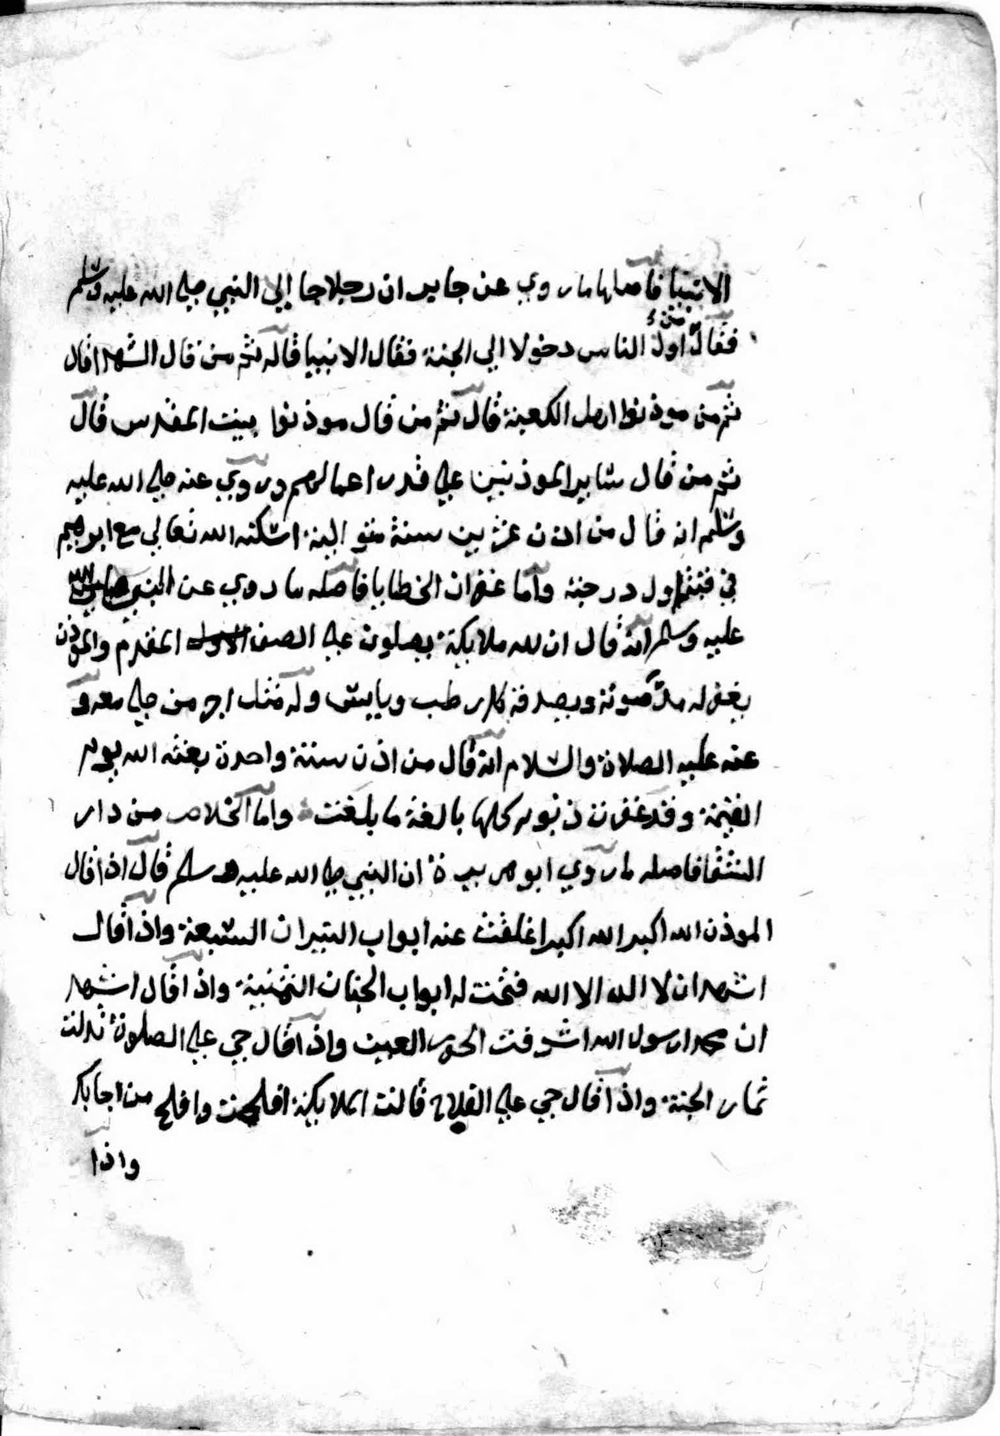 الانبيا فاصلها ما روي عن جابر ان رجلا جا إلي النبي صلي الله عليه وسلم
فقال من اول الناس دخولا الي الجنة فقال الانبيا قال ثم من قال الشهدا قال
ثم من قال موذنوا الكعبة قال ثم من قال موذنوا بيت المقدس قال
ثم من قال ساير الموذنين علي قدر اعمالهم وروي عنه صلي الله عليه
وسلم انه قال من اذن عشرين سنة متوالية اسكنه الله تعالي مع ابرهيم
في درجته واما غفران الخطايا فاصله ما روي عن النبي صلي الله
عليه وسلم انه قال ان لله ملايكة يصلون علي الصف الاول المقدم والموذن
يغفر له مد صوته ويصدقه كل رطب ويابس وله مثل اجر من صلي معه و
عنه عليه الصلاة والسلام انه قال من اذن سنة واحدة بعثه الله يوم
القيمة وقد غفرت ذنوبه كلها بالغة ما بلغت واما الخلاص من دار
الشقا فاصله ما روي ابو هريرة ان النبي صلي الله عليه وسلم قال اذا قال
الموذن الله اكبر الله اكبر اغلقت عنه ابواب النيران السبعة واذا قال
اشهد ان لا اله الا الله فتحت له ابواب الجنان الثمنية واذا قال اشهد
ان محمدا رسول الله اشرفت الحور العين واذا قال حي علي الصلوة تدلت
ثمار الجنة واذا قال حي علي الفلاح قالت الملايكة افلحت وافلح من اجابك
واذا